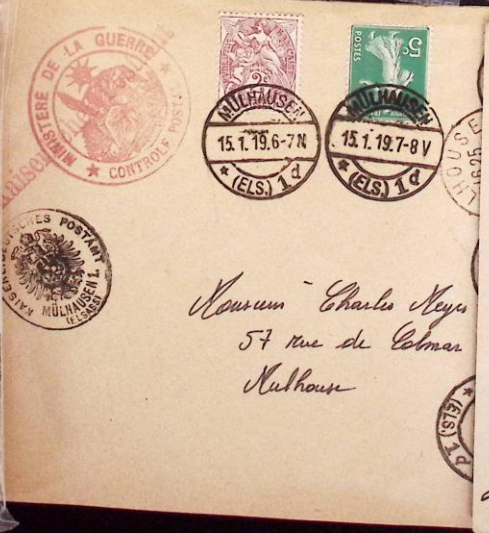 MINISTÈRE DE LA GUERRE
★ CONTROLE POSTAL ★
2c
5c
POSTES
MÜLHAUSEN
15.1.19.6-7N
★ (ELS.) 1 d
MÜLHAUSEN
15.1.19.7-8V
★ (ELS.) 1 d
LHOUSE
16 25
KAISERL. DEUTSCHES POSTAMT
MÜLHAUSEN 1.
(ELSASS)
Monsieur Charles Meyer
57 rue de Colmar
Mulhouse
★ (ELS.) 1 d